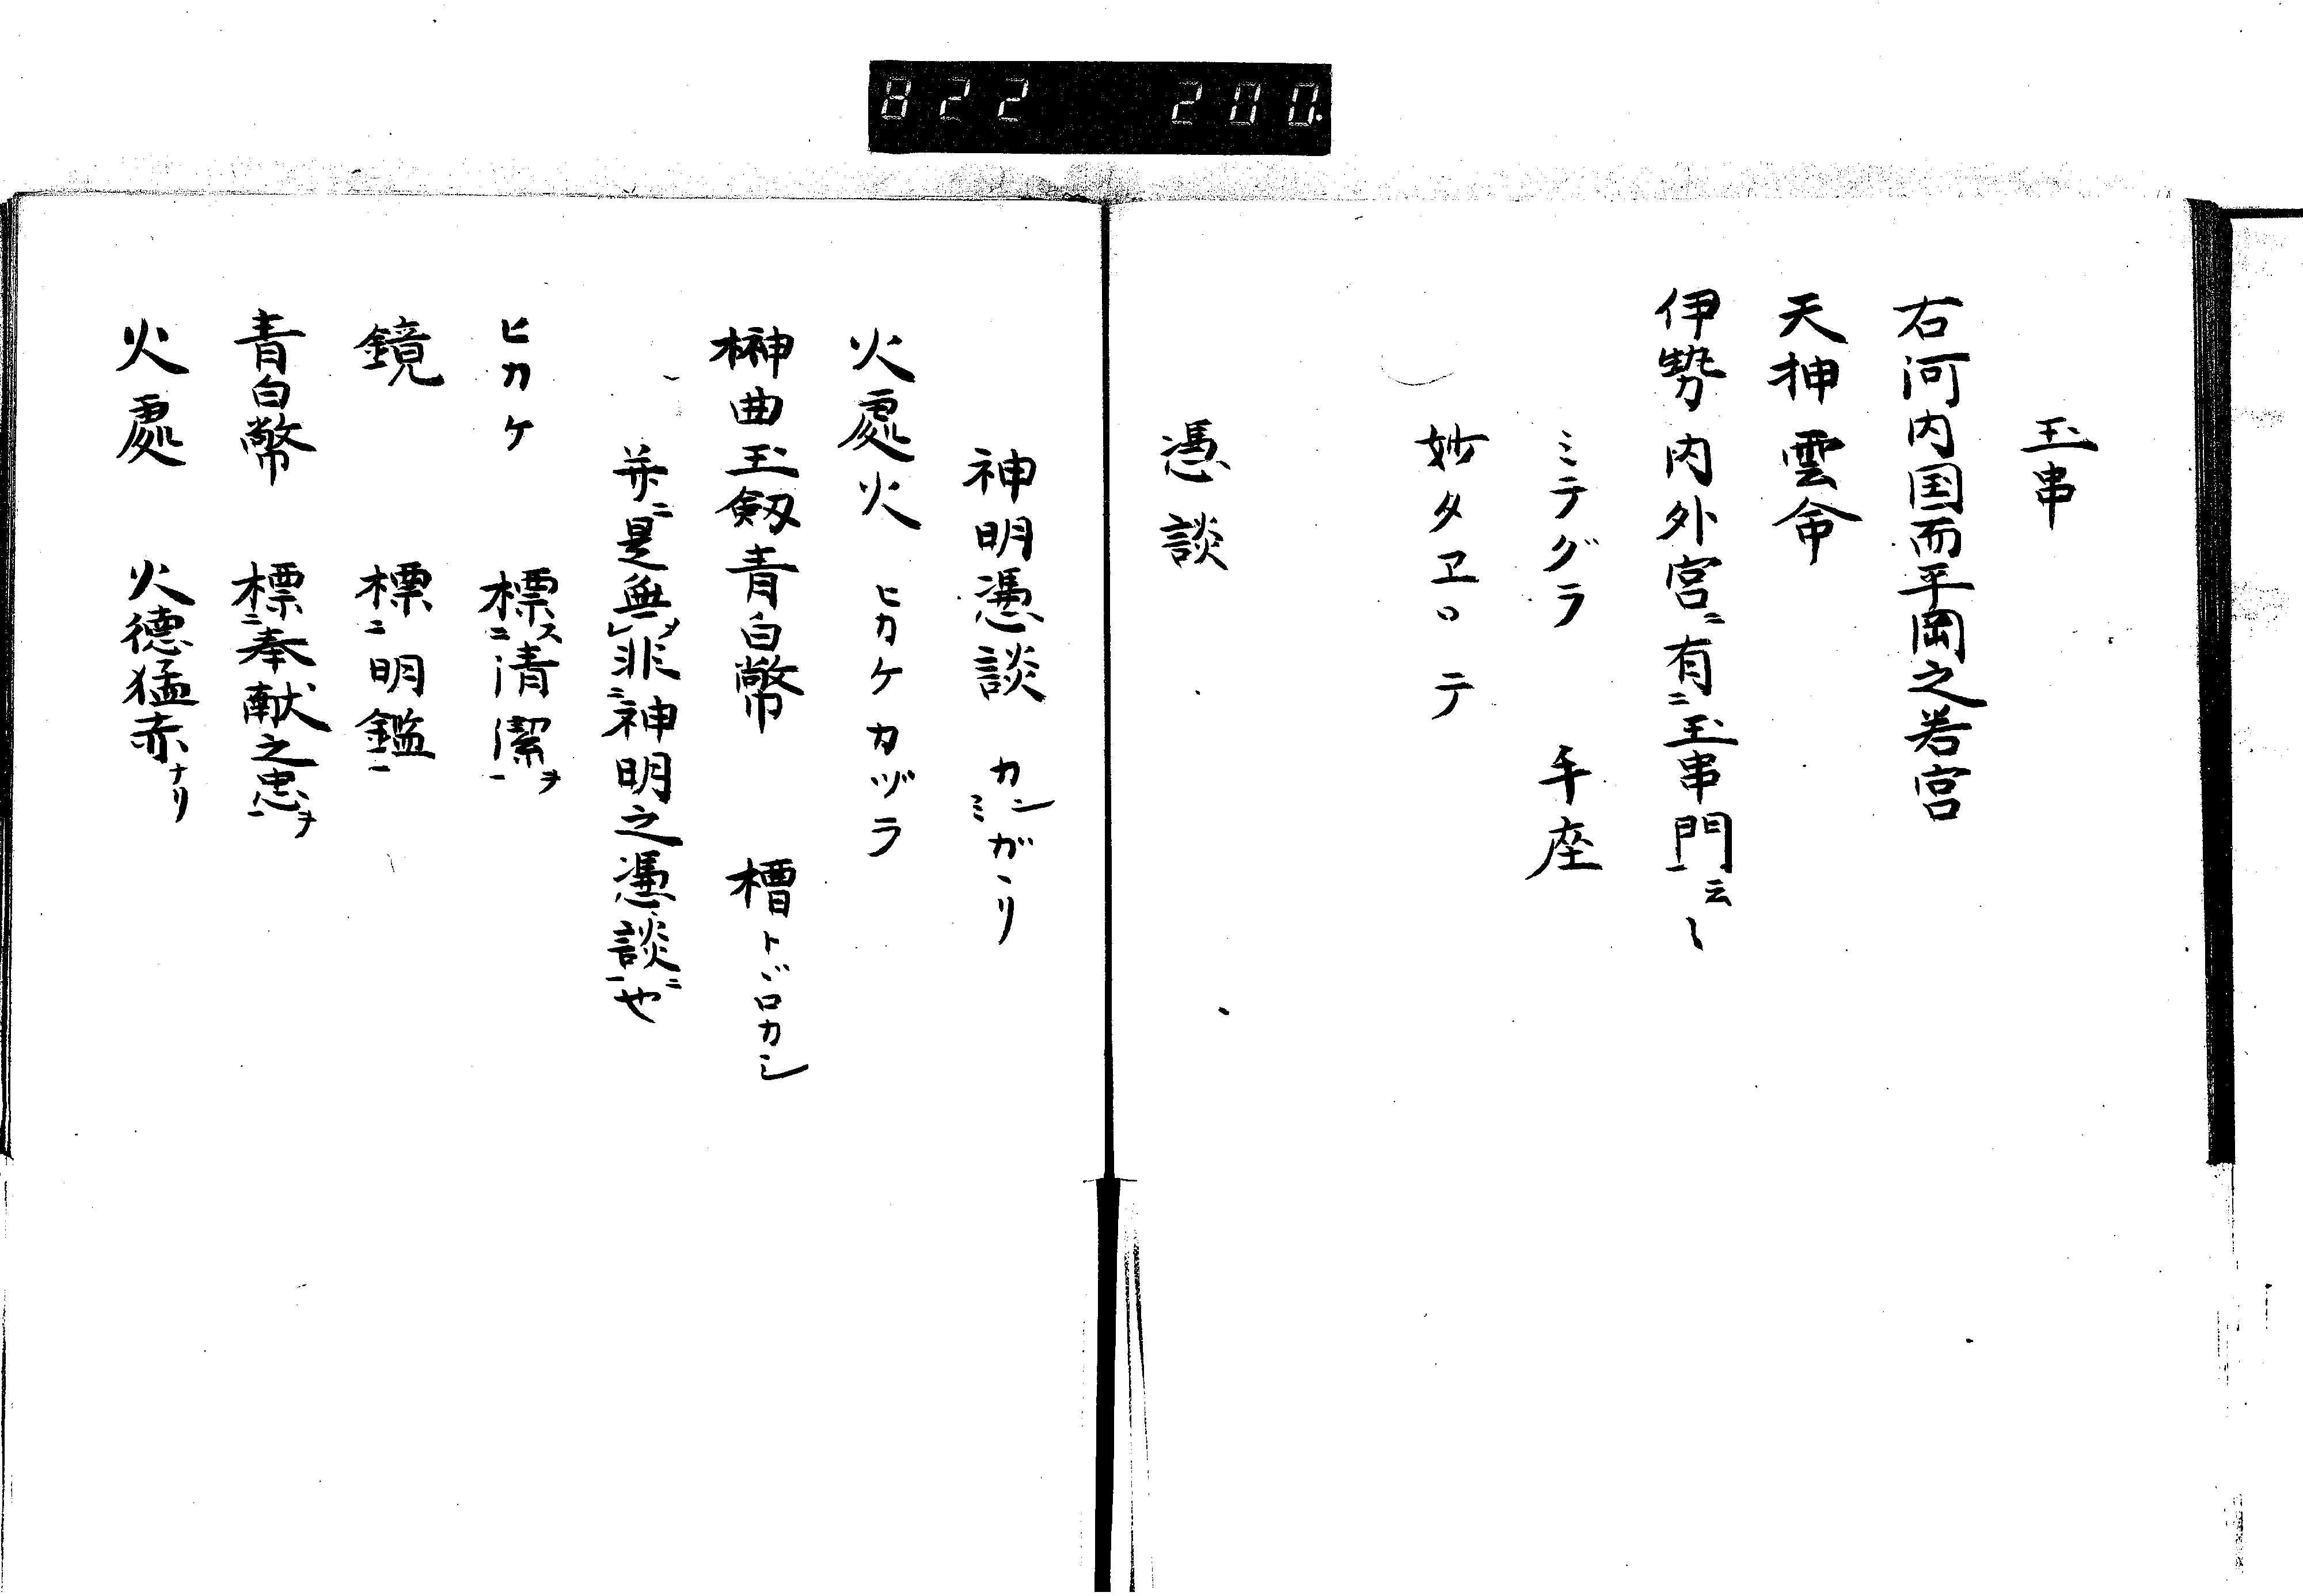 822 200.
玉串
右河内国而平岡之若宮
天神雲命
伊勢内外宮ニ有二玉串門一云〻
ミテグラ 手座
妙タヱロテ
憑談
神明憑談 カンミガヽリ
火處火 ヒカケカヅラ
榊曲玉剱青白幣 槽トヾロカシ
并ニ是無レ非二神明之憑談一ニや
ヒカケ 標ス二清潔一ヲ
鏡 標二明鑑一
青白幣 標二奉献之忠一ヲ
火處 火德猛赤ナリ